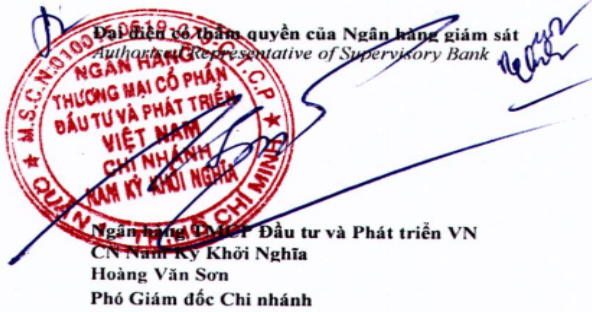 Đại diện có thẩm quyền của Ngân hàng giám sát
Authorised Representative of Supervisory Bank
NGÂN HÀNG
THƯƠNG MẠI CỔ PHẦN
ĐẦU TƯ VÀ PHÁT TRIỂN
VIỆT NAM
CHI NHÁNH
NAM KỲ KHỞI NGHĨA
Ngân hàng TMCP Đầu tư và Phát triển VN
CN Nam Kỳ Khởi Nghĩa
Hoàng Văn Sơn
Phó Giám đốc Chi nhánh